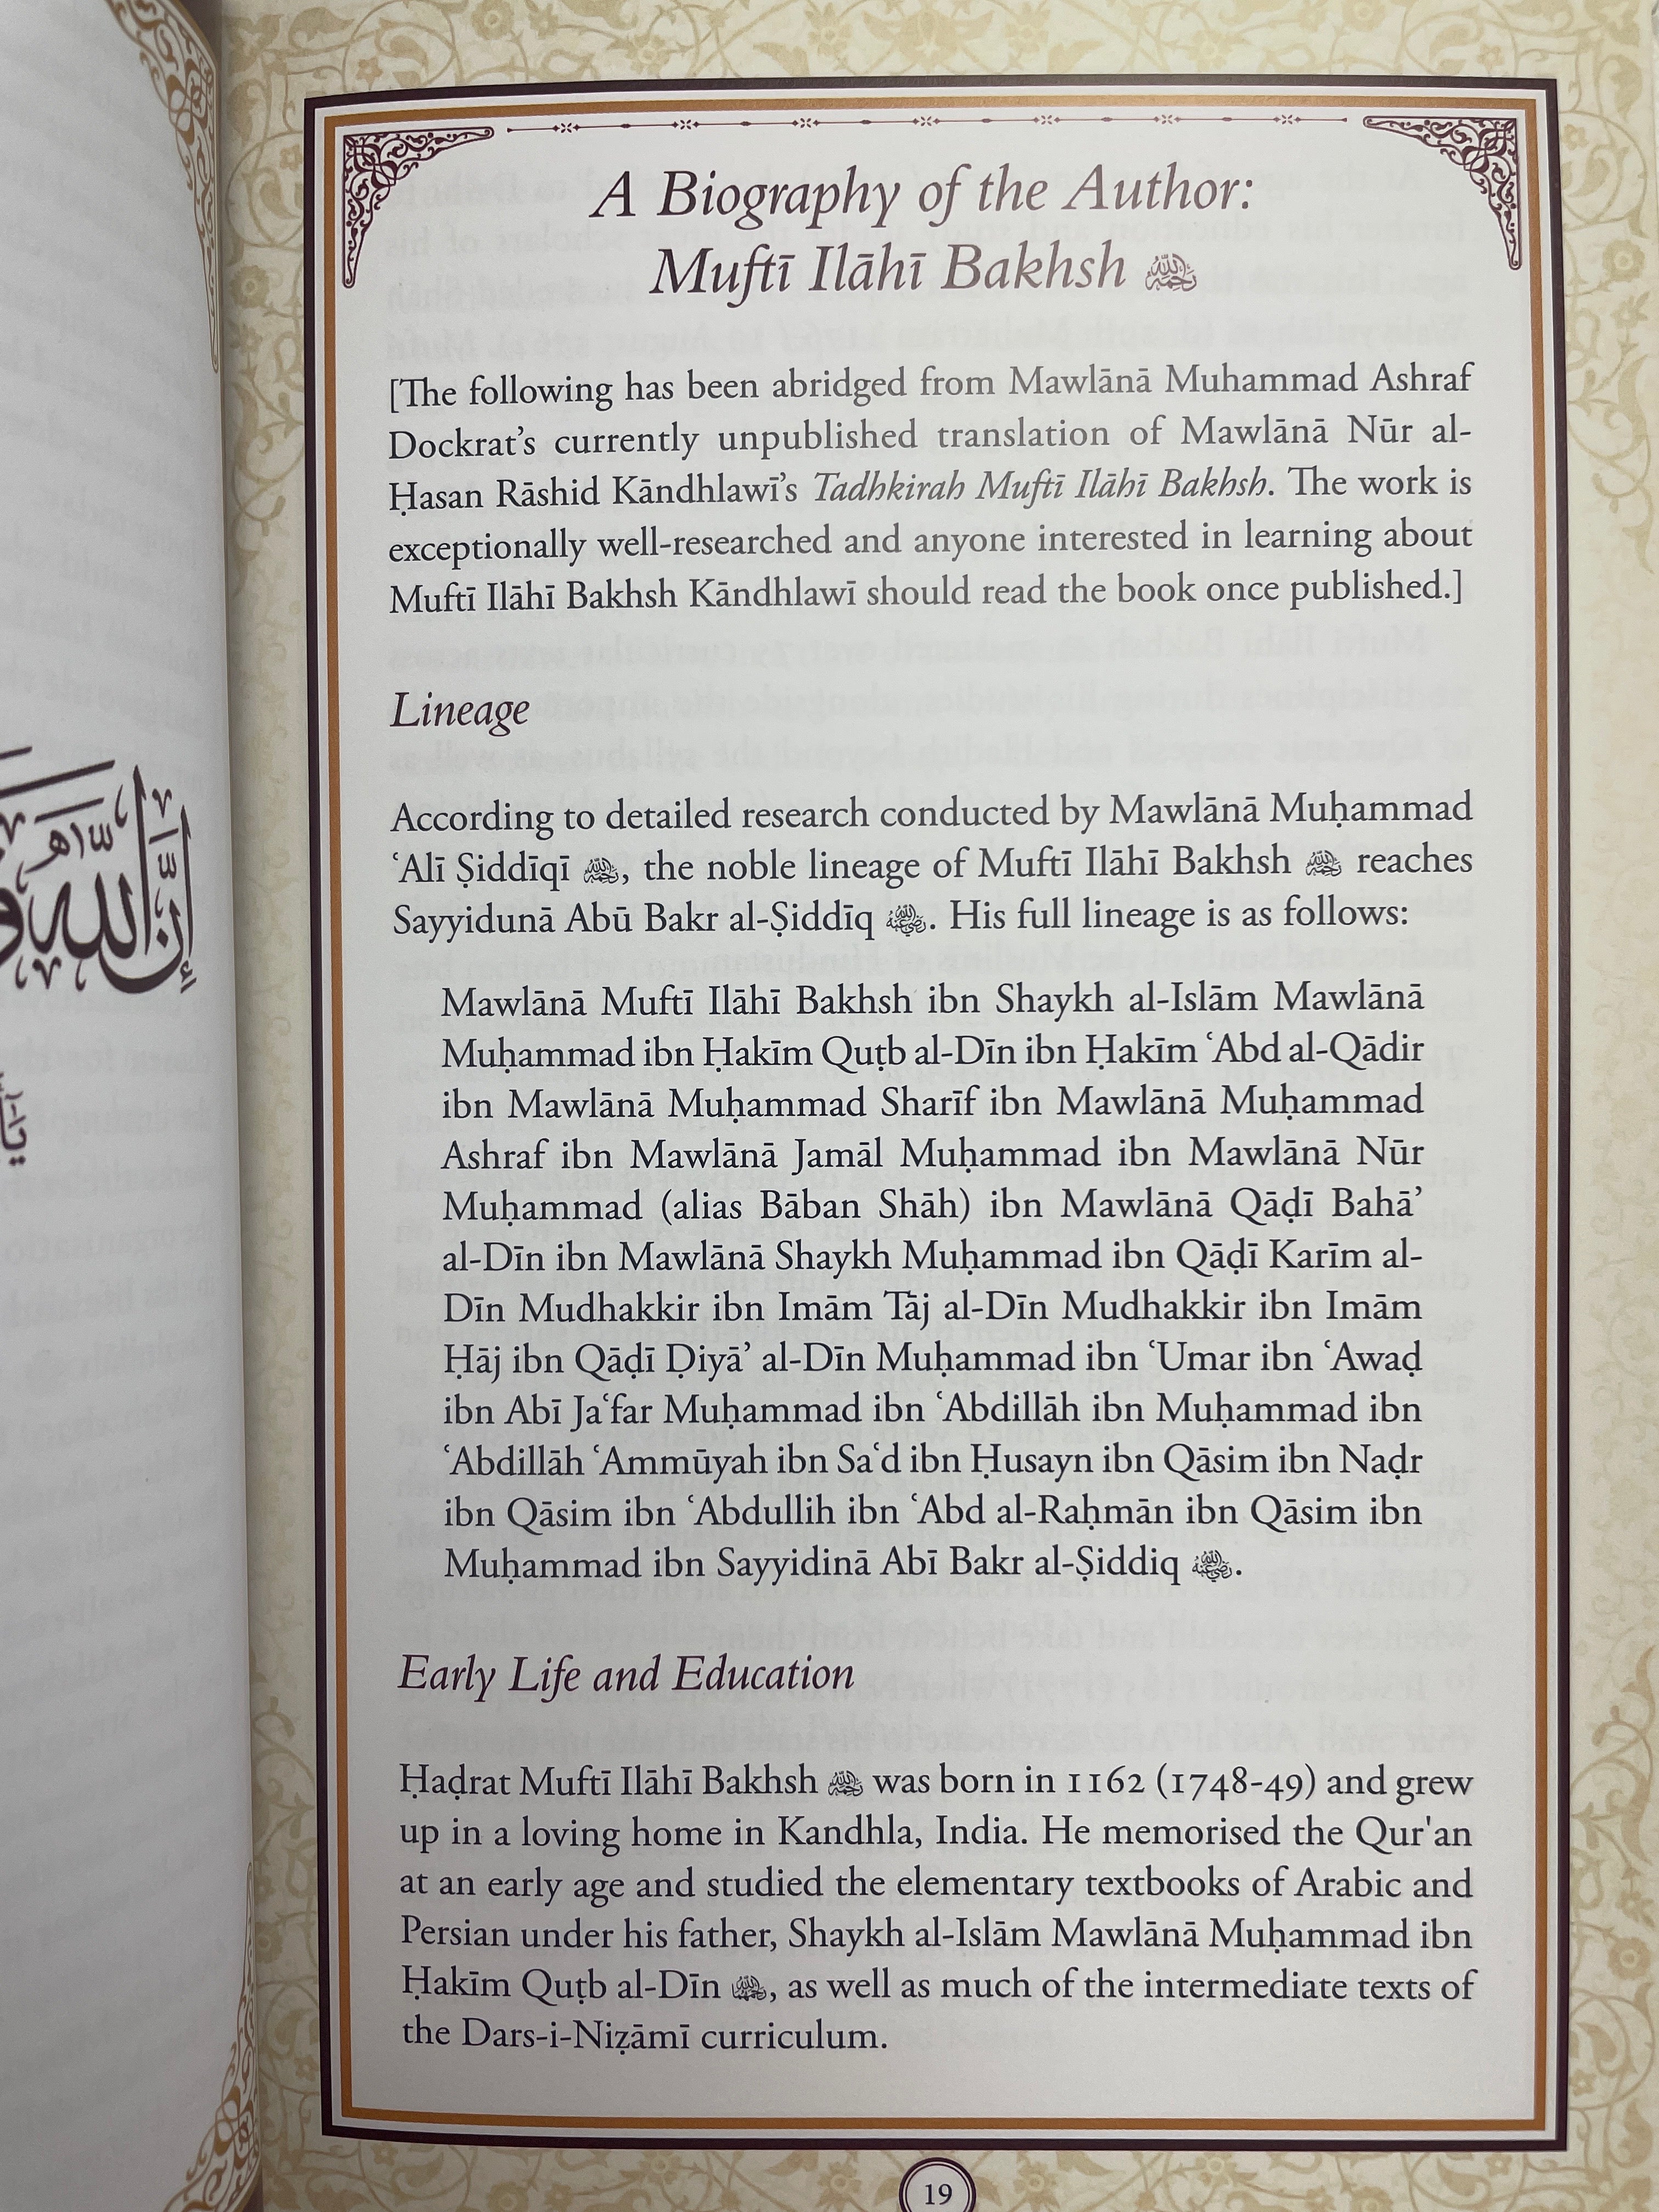 A Biography of the Author:
Muftī Ilāhī Bakhsh
[The following has been abridged from Mawlānā Muhammad Ashraf
Dockrat’s currently unpublished translation of Mawlānā Nūr al-
Ḥasan Rāshid Kāndhlawī’s Tadhkirah Muftī Ilāhī Bakhsh. The work is
exceptionally well-researched and anyone interested in learning about
Muftī Ilāhī Bakhsh Kāndhlawī should read the book once published.]
Lineage
According to detailed research conducted by Mawlānā Muḥammad
ʿAlī Ṣiddīqī , the noble lineage of Muftī Ilāhī Bakhsh reaches
Sayyidunā Abū Bakr al-Ṣiddīq . His full lineage is as follows:
Mawlānā Muftī Ilāhī Bakhsh ibn Shaykh al-Islām Mawlānā
Muḥammad ibn Ḥakīm Quṭb al-Dīn ibn Ḥakīm ʿAbd al-Qādir
ibn Mawlānā Muḥammad Sharīf ibn Mawlānā Muḥammad
Ashraf ibn Mawlānā Jamāl Muḥammad ibn Mawlānā Nūr
Muḥammad (alias Bāban Shāh) ibn Mawlānā Qāḍī Bahā’
al-Dīn ibn Mawlānā Shaykh Muḥammad ibn Qāḍī Karīm al-
Dīn Mudhakkir ibn Imām Tāj al-Dīn Mudhakkir ibn Imām
Ḥāj ibn Qāḍī Ḍiyā’ al-Dīn Muḥammad ibn ʿUmar ibn ʿAwaḍ
ibn Abī Jaʿfar Muḥammad ibn ʿAbdillāh ibn Muḥammad ibn
ʿAbdillāh ʿAmmūyah ibn Saʿd ibn Ḥusayn ibn Qāsim ibn Naḍr
ibn Qāsim ibn ʿAbdullih ibn ʿAbd al-Raḥmān ibn Qāsim ibn
Muḥammad ibn Sayyidinā Abī Bakr al-Ṣiddiq .
Early Life and Education
Ḥaḍrat Muftī Ilāhī Bakhsh was born in 1162 (1748-49) and grew
up in a loving home in Kandhla, India. He memorised the Qur'an
at an early age and studied the elementary textbooks of Arabic and
Persian under his father, Shaykh al-Islām Mawlānā Muḥammad ibn
Ḥakīm Quṭb al-Dīn , as well as much of the intermediate texts of
the Dars-i-Niẓāmī curriculum.
19
إِنَّ اللَّهَ